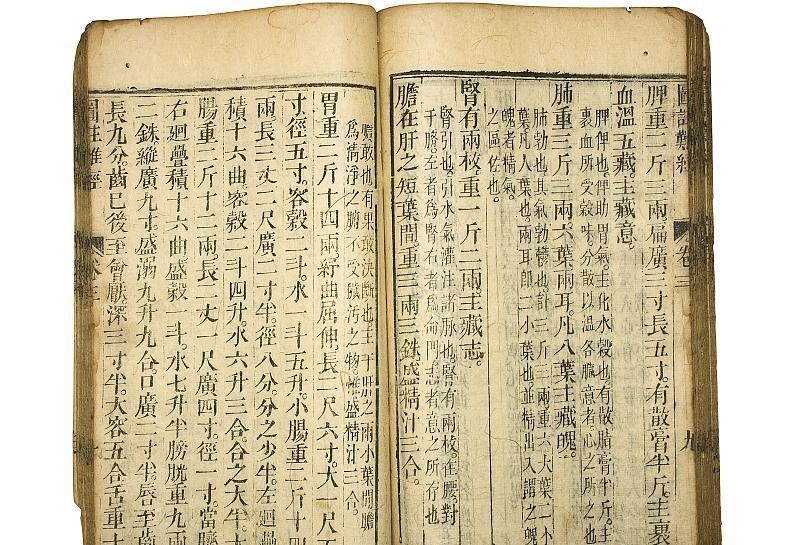 圖註難經 卷三 九
脾重二斤三兩。扁廣三寸。長五寸。有散膏半斤。主裹
血。溫五藏。主藏意。
脾俾也。俾助胃氣。主化水穀也。有散膏半斤。主
裹血。所受穀味。分散以温各臓。意者。心之所之也
肺重三斤三兩。六葉兩耳。凡八葉。主藏魄。
肺勃也。其氣勃鬱也。計三斤三兩重。六大葉。二小
葉。凡人葉也。兩耳卽二小葉也。並精出入謂之魄
魄者。精氣
之匡佐也。
腎有兩枚。重一斤二兩。主藏志。
腎引也。引水氣灌注諸脉也。腎有兩枚。在腰對
左者爲腎。右者爲命門。志者意之所存也
膽在肝之短葉間。重三兩三銖。盛精汁三合。
膽敢也。有果敢決斷也。主于肝之兩小葉間。膽
爲清淨之腑。不受穢污之物。惟盛精汁三合。
胃重二斤十四兩。紆曲屈伸。長二尺六寸。大一尺五
寸。徑五寸。容穀二斗。水一斗五升。小腸重二斤十四
兩。長三丈二尺。廣二寸半。徑八分分之少半。左廻疊
積十六曲。容穀二斗四升。水六升三合合之大半。大
腸重二斤十二兩。長一丈一尺。廣四寸。徑一寸。當臍
右廻疊積十六曲。盛穀一斗。水七升半。膀胱重九兩
二銖。縱廣九寸。盛溺九升九合。口廣二寸半。唇至齒
長九分。齒已後至會厭。深三寸半。大容五合。舌重十
圖註難經 卷三